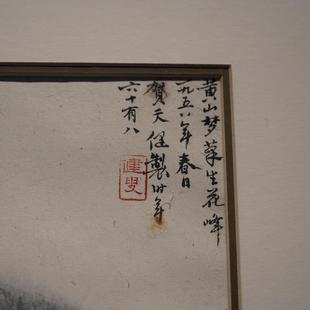 黄山梦笔生花峰
一九五八年春日
贺天健製时年
六十有八
健叟